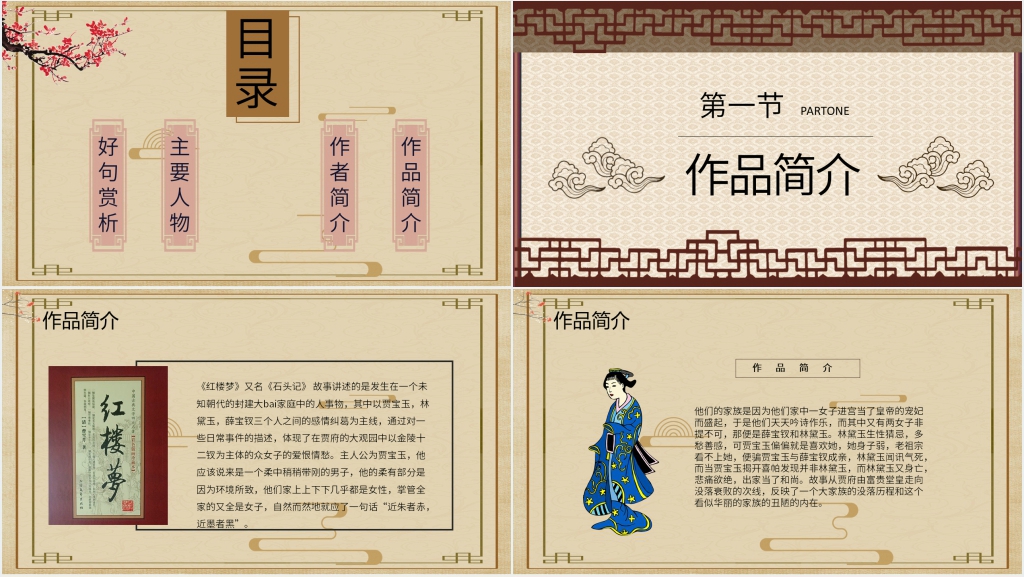 目录
好句赏析
主要人物
作者简介
作品简介
第一节 PARTONE
作品简介
作品简介
红楼梦
《红楼梦》又名《石头记》 故事讲述的是发生在一个未
知朝代的封建大bai家庭中的人事物，其中以贾宝玉，林
黛玉，薛宝钗三个人之间的感情纠葛为主线，通过对一
些日常事件的描述，体现了在贾府的大观园中以金陵十
二钗为主体的众女子的爱恨情愁。主人公为贾宝玉，他
应该说来是一个柔中稍稍带刚的男子，他的柔有部分是
因为环境所致，他们家上上下下几乎都是女性，掌管全
家的又全是女子，自然而然地就应了一句话“近朱者赤，
近墨者黑”。
作品简介
作 品 简 介
他们的家族是因为他们家中一女子进宫当了皇帝的宠妃
而盛起，于是他们天天吟诗作乐，而其中又有两女子非
提不可，那便是薛宝钗和林黛玉。林黛玉生性猜忌，多
愁善感，可贾宝玉偏偏就是喜欢她，她身子弱，老祖宗
看不上她，便骗贾宝玉与薛宝钗成亲，林黛玉闻讯气死，
而当贾宝玉揭开喜帕发现并非林黛玉，而林黛玉又身亡，
悲痛欲绝，出家当了和尚。故事从贾府由富贵堂皇走向
没落衰败的次线，反映了一个大家族的没落历程和这个
看似华丽的家族的丑陋的内在。